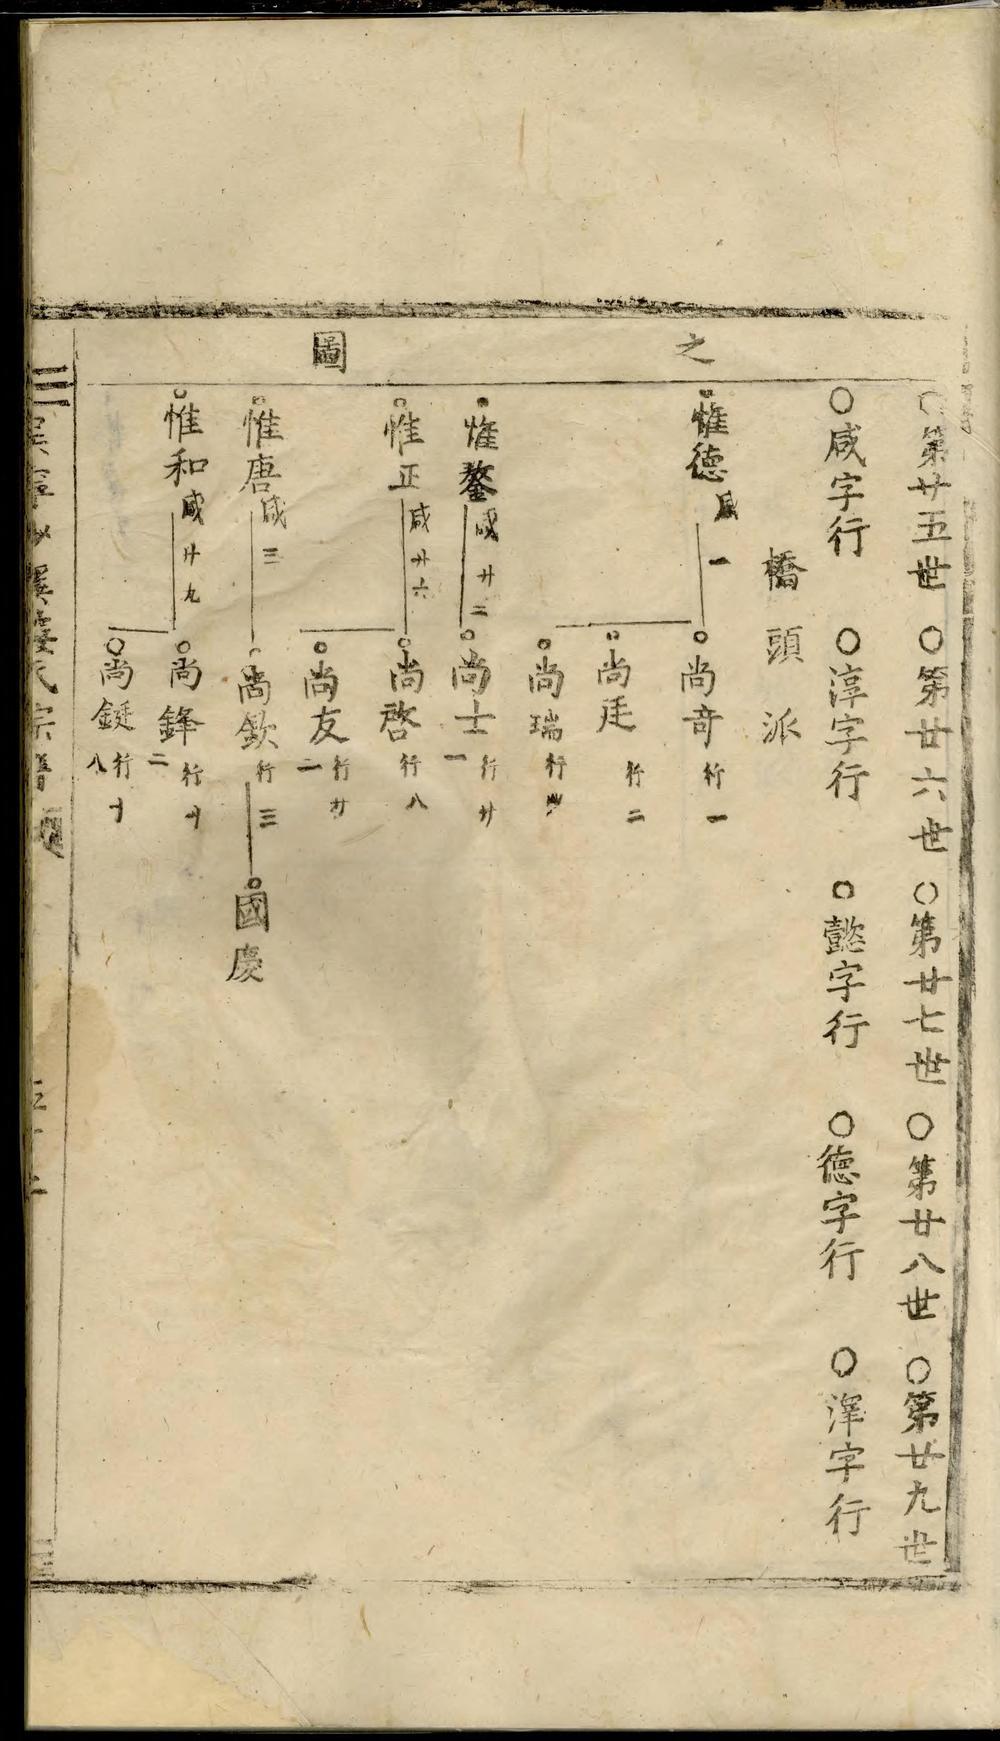 之圖
○第廿五世○第廿六世○第廿七世○第廿八世○第廿九世
○咸字行○淳字行○懿字行○德字行○澤字行
橋頭派
惟德咸一
尚奇行一
尚廷行二
尚瑞行四
惟鰲咸廿二
尚士行廿一
惟正咸廿六
尚啓行八
尚友行廿二
惟唐咸三
尚欽行三
國慶
惟和咸廿九
尚鋒行廿二
尚鋌行十八
宗譜